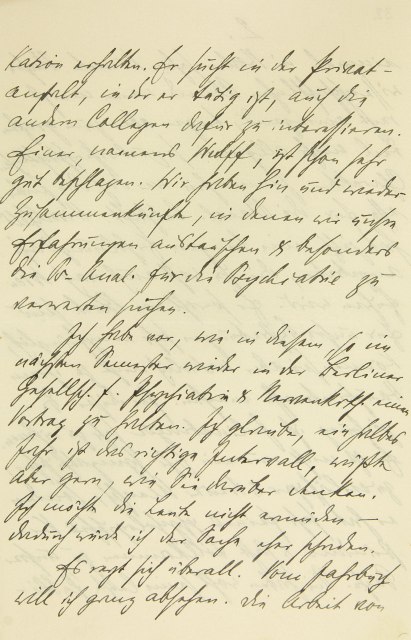 kation erhalten. Er sucht in der Privat-
anstalt, in der er tätig ist, auch die
andern Collegen dafür zu interessieren.
Einer, namens Wulff, ist schon sehr
gut beschlagen. Wir haben hin und wieder
Zusammenkünfte, in denen wir unsre
Erfahrungen austauschen & besonders
die Ps-Anal. für die Psychiatrie zu
verwerten suchen.
Ich habe vor, wie in diesem, so im
nächsten Semester wieder in der Berliner
Gesellsch. f. Psychiatrie & Nervenkrkh. einen
Vortrag zu halten. Ich glaube, ein halbes
Jahr ist das richtige Intervall, wüßte
aber gern, wie Sie darüber denken.
Ich möchte die Leute nicht ermüden —
dadurch würde ich der Sache eher schaden.
Es regt sich überall. Vom Jahrbuch
will ich ganz absehen. Die Arbeit von